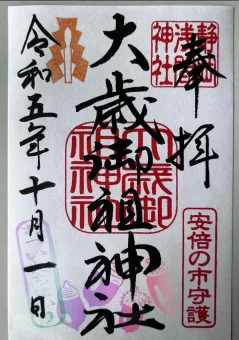 奉拝
静岡浅間神社
大歳御祖神社
大歳御祖神社
安倍の市守護
令和五年十月一日